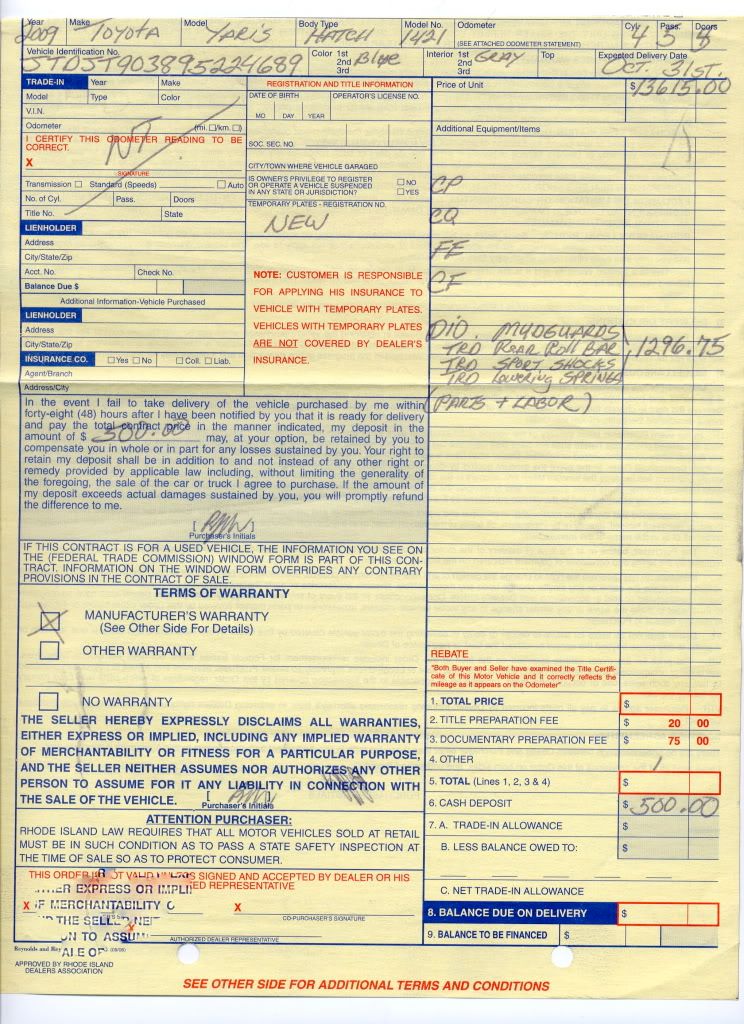 Year Make Model Body Type Model No. Odometer Cyl. Pass. Doors
2009 TOYOTA YARIS HATCH 1421 (SEE ATTACHED ODOMETER STATEMENT) 4 5 3
Vehicle Identification No. Color 1st 2nd 3rd Blue Interior 1st 2nd 3rd GRAY Top Expected Delivery Date
JTDJT903895224689 OCT. 31ST.
TRADE-IN Year Make
Model Type Color
V.I.N.
Odometer (mi. ☐/km. ☐)
I CERTIFY THIS ODOMETER READING TO BE
CORRECT.
NT
X
SIGNATURE
Transmission ☐ Standard (Speeds) ☐ Auto
No. of Cyl. Pass. Doors
Title No. State
LIENHOLDER
Address
City/State/Zip
Acct. No. Check No.
Balance Due $
Additional Information-Vehicle Purchased
LIENHOLDER
Address
City/State/Zip
INSURANCE CO. ☐ Yes ☐ No ☐ Coll. ☐ Liab.
Agent/Branch
Address/City
REGISTRATION AND TITLE INFORMATION
DATE OF BIRTH OPERATOR'S LICENSE NO.
MO DAY YEAR
SOC. SEC. NO.
CITY/TOWN WHERE VEHICLE GARAGED
IS OWNER'S PRIVILEGE TO REGISTER ☐ NO
OR OPERATE A VEHICLE SUSPENDED ☐ YES
IN ANY STATE OR JURISDICTION?
TEMPORARY PLATES - REGISTRATION NO.
NEW
NOTE: CUSTOMER IS RESPONSIBLE
FOR APPLYING HIS INSURANCE TO
VEHICLE WITH TEMPORARY PLATES.
VEHICLES WITH TEMPORARY PLATES
ARE NOT COVERED BY DEALER'S
INSURANCE.
Price of Unit $ 13615.00
Additional Equipment/Items
CP
CQ
FE
CF
DIO. MUDGUARDS
TRD REAR ROLL BAR 1296.75
TRD SPORT SHOCKS
TRD LOWERING SPRINGS
(PARTS + LABOR)
In the event I fail to take delivery of the vehicle purchased by me within
forty-eight (48) hours after I have been notified by you that it is ready for delivery
and pay the total contract price in the manner indicated, my deposit in the
amount of $ 500.00 may, at your option, be retained by you to
compensate you in whole or in part for any losses sustained by you. Your right to
retain my deposit shall be in addition to and not instead of any other right or
remedy provided by applicable law including, without limiting the generality of
the foregoing, the sale of the car or truck I agree to purchase. If the amount of
my deposit exceeds actual damages sustained by you, you will promptly refund
the difference to me.
[ ]
Purchaser's Initials
IF THIS CONTRACT IS FOR A USED VEHICLE, THE INFORMATION YOU SEE ON
THE (FEDERAL TRADE COMMISSION) WINDOW FORM IS PART OF THIS CON-
TRACT. INFORMATION ON THE WINDOW FORM OVERRIDES ANY CONTRARY
PROVISIONS IN THE CONTRACT OF SALE.
TERMS OF WARRANTY
MANUFACTURER'S WARRANTY
(See Other Side For Details)
OTHER WARRANTY
NO WARRANTY
THE SELLER HEREBY EXPRESSLY DISCLAIMS ALL WARRANTIES,
EITHER EXPRESS OR IMPLIED, INCLUDING ANY IMPLIED WARRANTY
OF MERCHANTABILITY OR FITNESS FOR A PARTICULAR PURPOSE,
AND THE SELLER NEITHER ASSUMES NOR AUTHORIZES ANY OTHER
PERSON TO ASSUME FOR IT ANY LIABILITY IN CONNECTION WITH
THE SALE OF THE VEHICLE. [ ]
Purchaser's Initials
ATTENTION PURCHASER:
RHODE ISLAND LAW REQUIRES THAT ALL MOTOR VEHICLES SOLD AT RETAIL
MUST BE IN SUCH CONDITION AS TO PASS A STATE SAFETY INSPECTION AT
THE TIME OF SALE SO AS TO PROTECT CONSUMER.
THIS ORDER IS NOT VALID UNLESS SIGNED AND ACCEPTED BY DEALER OR HIS
EXPRESS OR IMPLI
REPRESENTATIVE
X F MERCHANTABILITY X
THE SELLER NEI CO-PURCHASER'S SIGNATURE
N TO ASSU AUTHORIZED DEALER REPRESENTATIVE
ALE OF
Reynolds and
APPROVED BY RHODE ISLAND
DEALERS ASSOCIATION
REBATE
"Both Buyer and Seller have examined the Title Certifi-
cate of this Motor Vehicle and it correctly reflects the
mileage as it appears on the Odometer"
1. TOTAL PRICE $
2. TITLE PREPARATION FEE $ 20 00
3. DOCUMENTARY PREPARATION FEE $ 75 00
4. OTHER
5. TOTAL (Lines 1, 2, 3 & 4) $
6. CASH DEPOSIT $ 500.00
7. A. TRADE-IN ALLOWANCE $
B. LESS BALANCE OWED TO: $
C. NET TRADE-IN ALLOWANCE
8. BALANCE DUE ON DELIVERY $
9. BALANCE TO BE FINANCED $
SEE OTHER SIDE FOR ADDITIONAL TERMS AND CONDITIONS